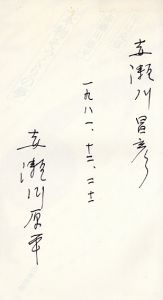 赤瀬川冒彦
一九八一、十二、二十二
赤瀬川原平